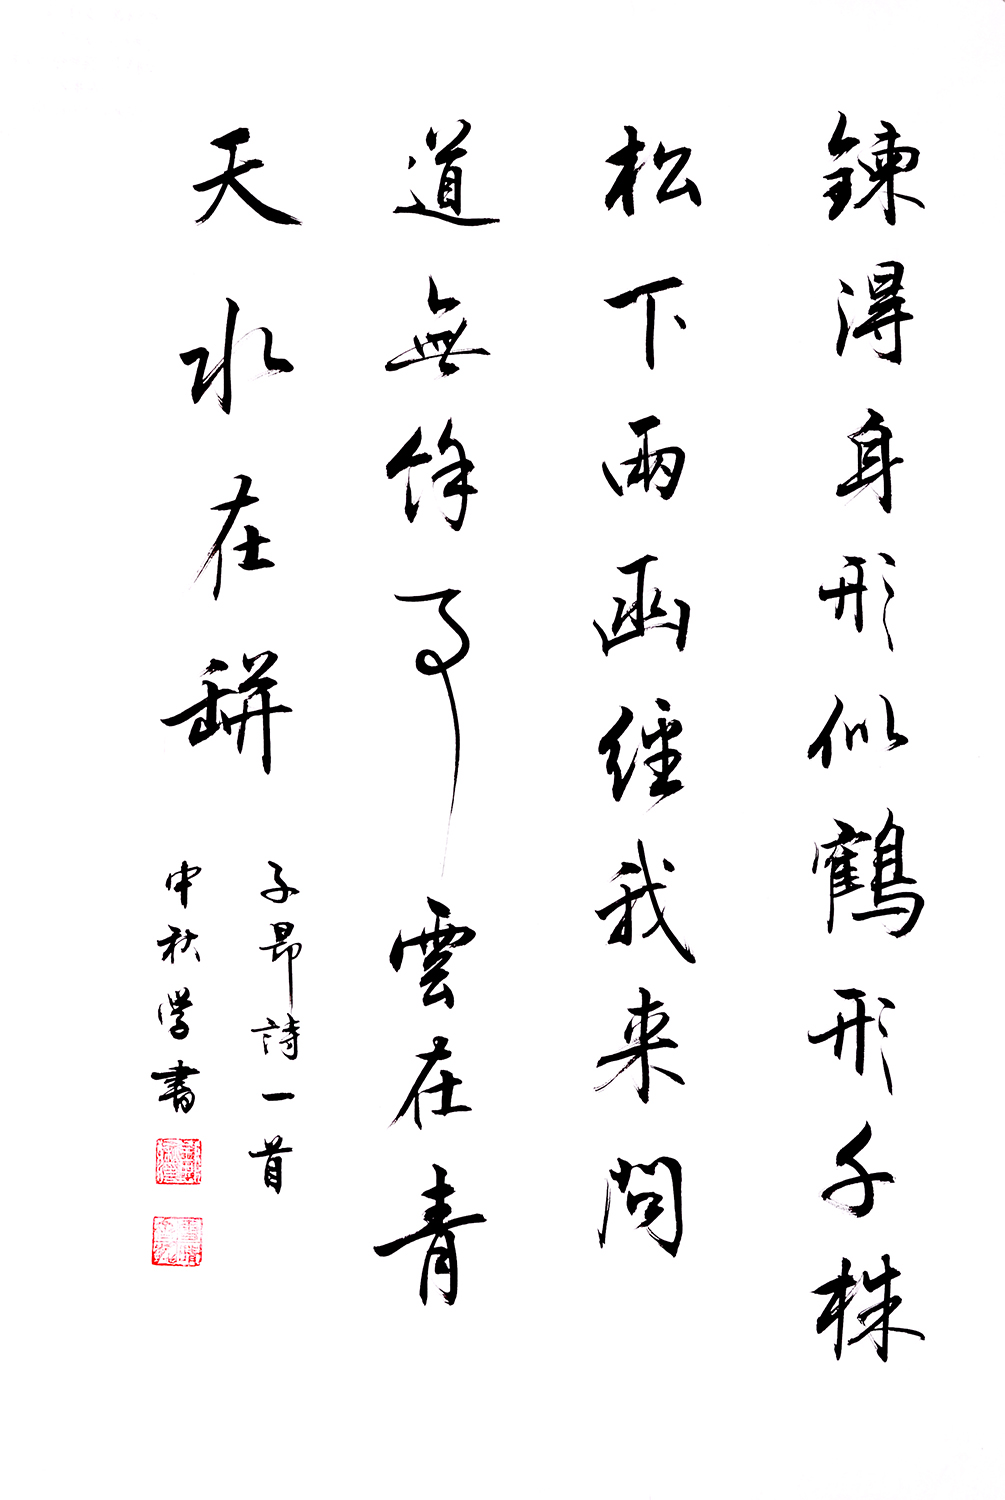 鍊得身形似鶴形千株
松下兩函經我来問
道無餘事雲在青
天水在缾
子昂詩一首
中秋學書